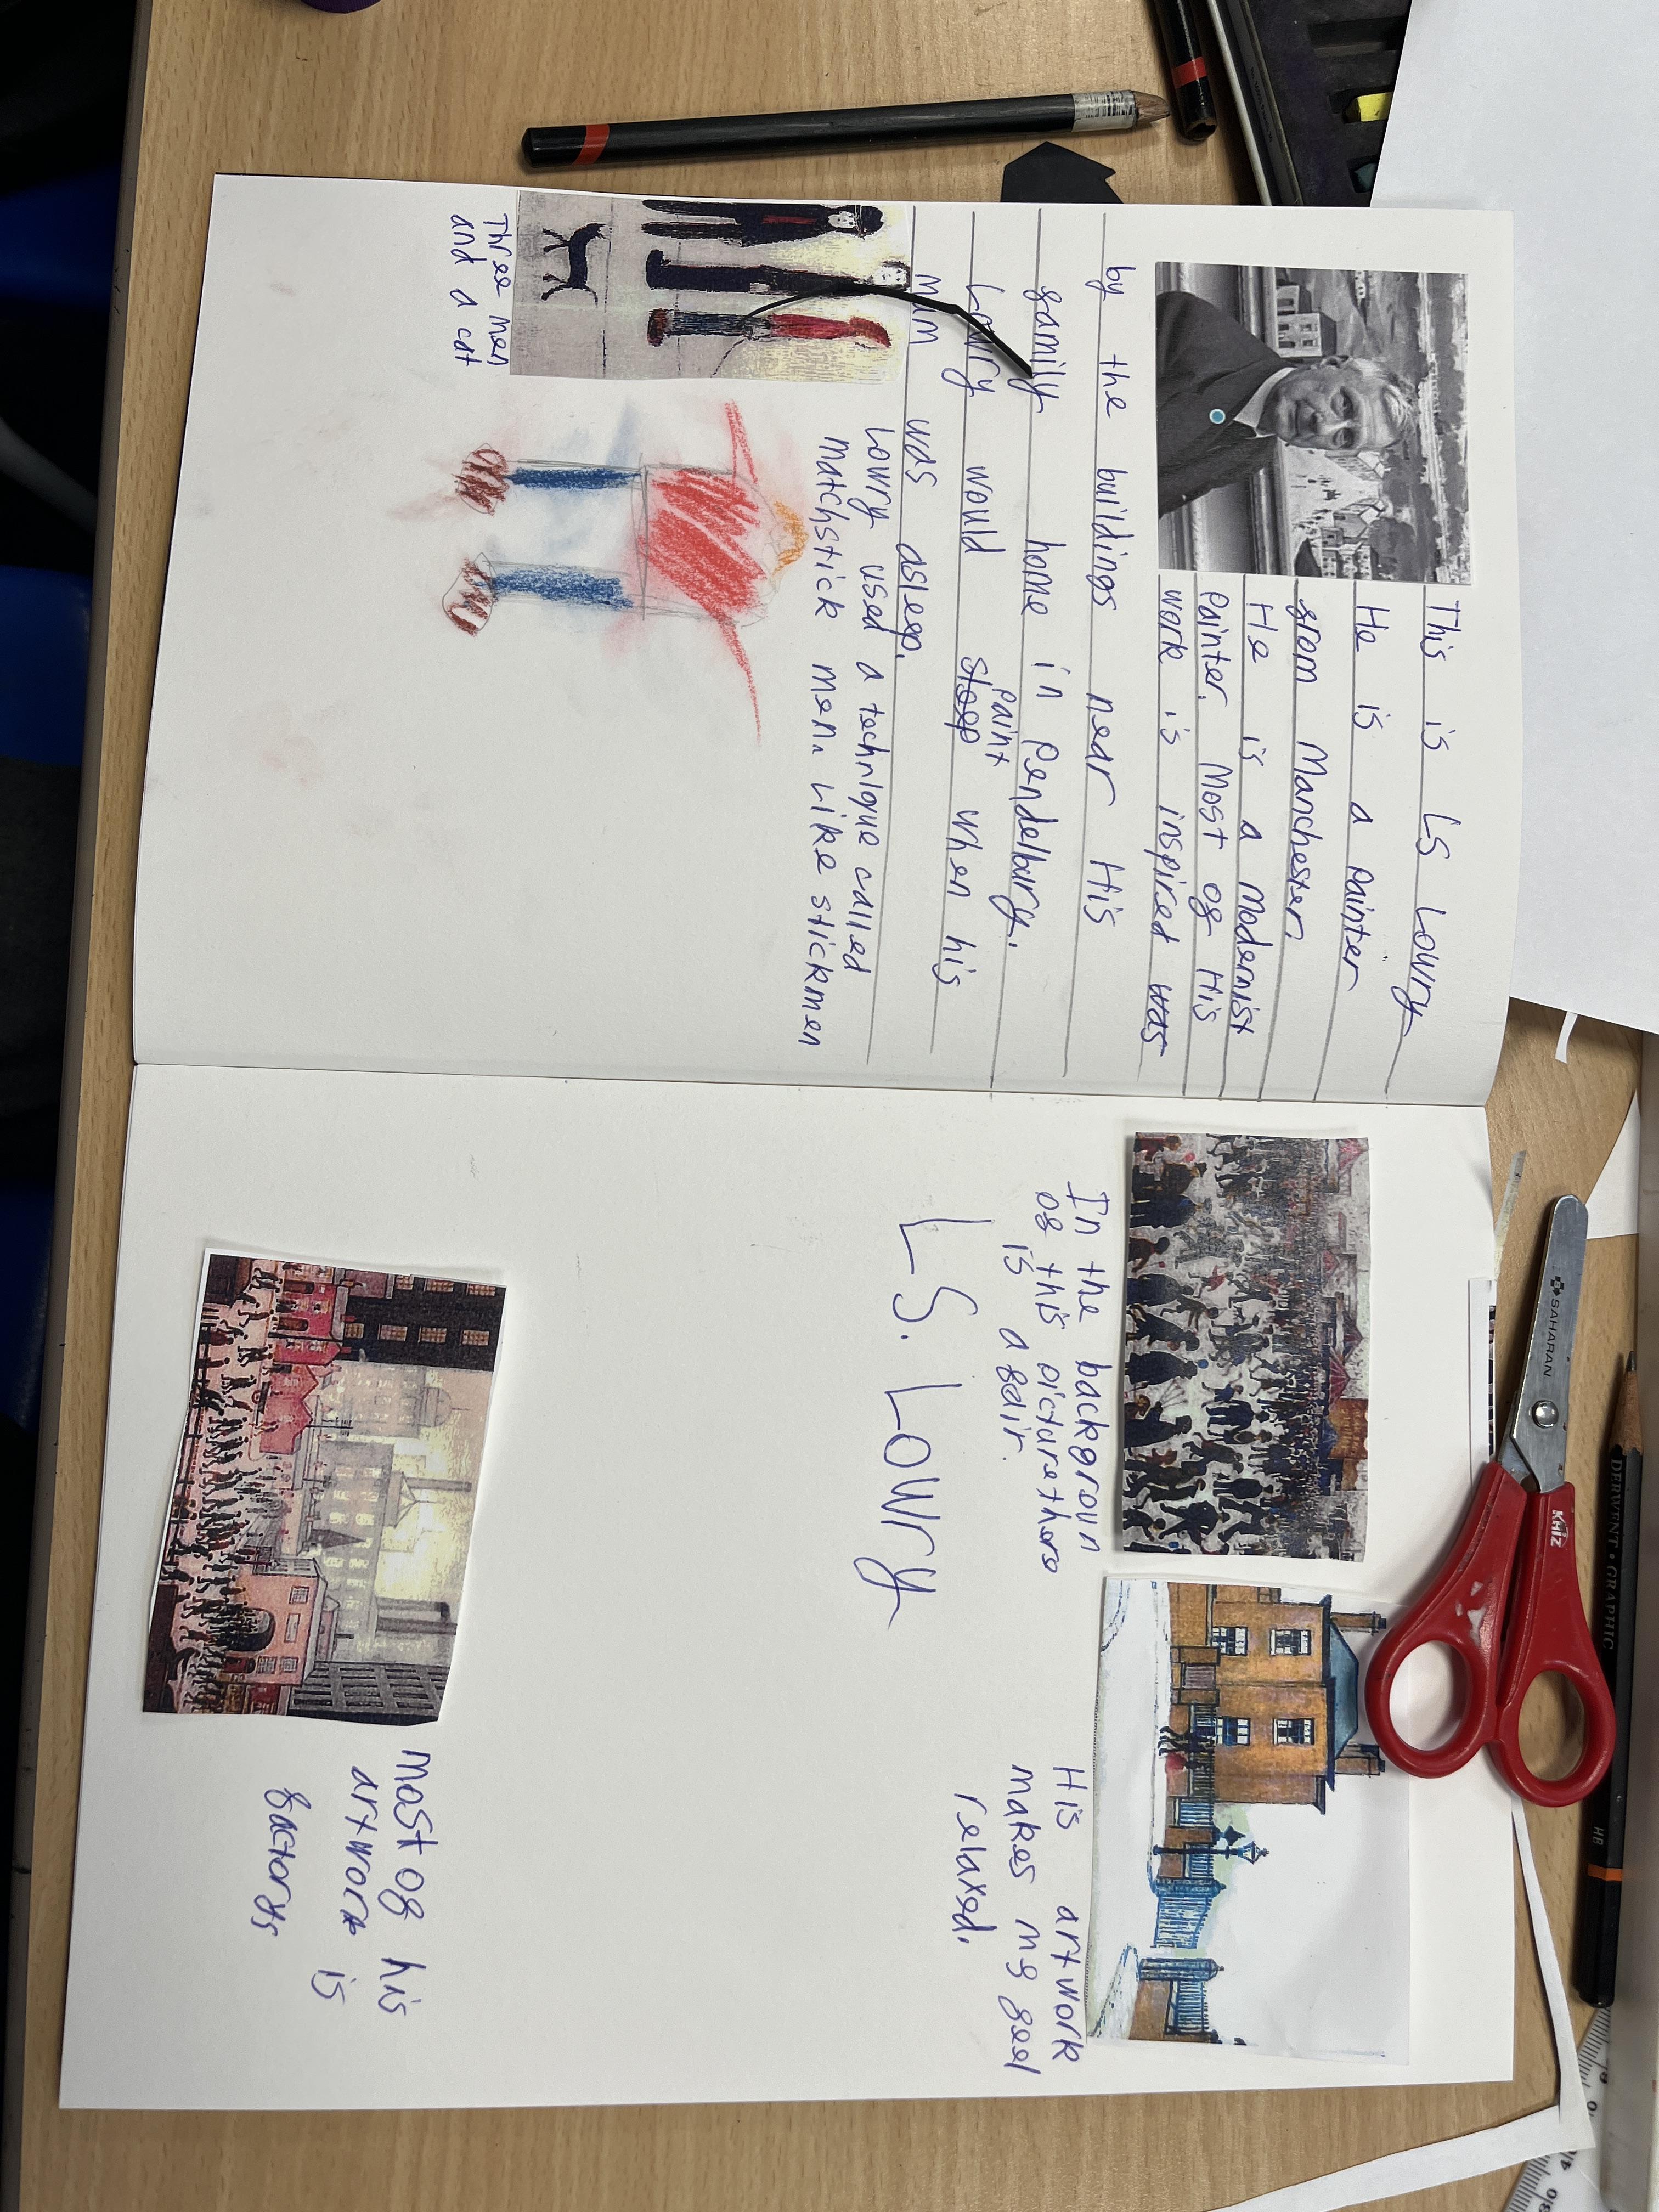 This is LS Lowry
He is a painter
from Manchester.
He is a Modernist
painter. Most of His
work is inspired was
by the buildings near His
family home in Pendelbury.
Lowry would sleep paint when his
mum was asleep.
Lowry used a technique called
matchstick men. Like stickmen
Three men
and a cat
In the backgroun
of this picture there
is a fair.
L S. Lowry
His artwork
makes me feel
relaxed.
most of his
artwork is
factorys
SAHARAN
KHIZ
DERWENT • GRAPHIC
HB